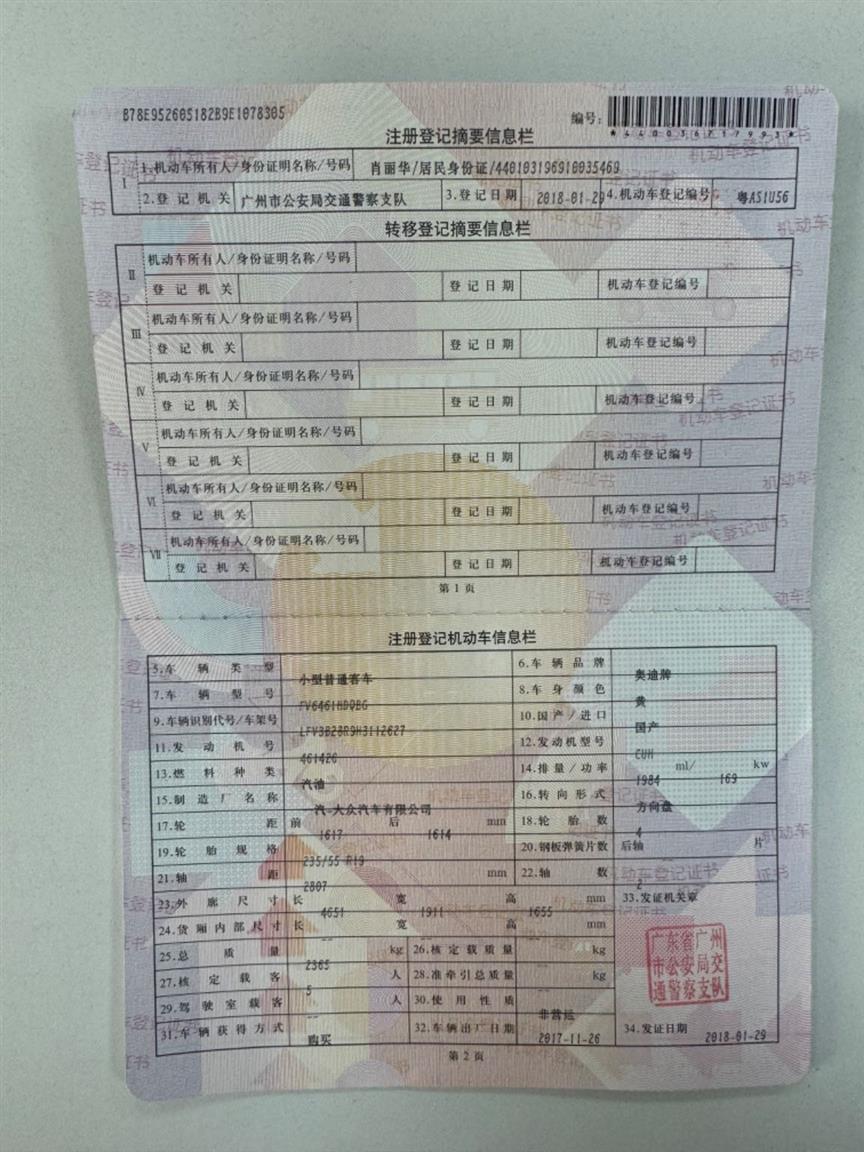 B78E952605182B9E1078305
编号:
*440036717993*
注册登记摘要信息栏
I 1.机动车所有人/身份证明名称/号码 肖丽华/居民身份证/440103196910035469
2.登记机关 广州市公安局交通警察支队 3.登记日期 2018-01-29 4.机动车登记编号 粤AS1U56
转移登记摘要信息栏
II 机动车所有人/身份证明名称/号码
登记机关 登记日期 机动车登记编号
III 机动车所有人/身份证明名称/号码
登记机关 登记日期 机动车登记编号
IV 机动车所有人/身份证明名称/号码
登记机关 登记日期 机动车登记编号
V 机动车所有人/身份证明名称/号码
登记机关 登记日期 机动车登记编号
VI 机动车所有人/身份证明名称/号码
登记机关 登记日期 机动车登记编号
VII 机动车所有人/身份证明名称/号码
登记机关 登记日期 机动车登记编号
第1页
注册登记机动车信息栏
5.车辆类型 小型普通客车 6.车辆品牌 奥迪牌
7.车辆型号 FV6461HDQBG 8.车身颜色 黄
9.车辆识别代号/车架号 LFV3B28R9H3112627 10.国产/进口 国产
11.发动机号 461426 12.发动机型号 CUH
13.燃料种类 汽油 14.排量/功率 1984 ml/ 169 kw
15.制造厂名称 一汽-大众汽车有限公司 16.转向形式 方向盘
17.轮距 前 1617 后 1614 mm 18.轮胎数 4
19.轮胎规格 235/55 R19 20.钢板弹簧片数 后轴 片
21.轴距 2807 mm 22.轴数 2
23.外廓尺寸 长 4651 宽 1911 高 1655 mm 33.发证机关章
24.货厢内部尺寸 长 -- 宽 -- 高 -- mm
25.总质量 2365 kg 26.核定载质量 -- kg
27.核定载客 5 人 28.准牵引总质量 -- kg
29.驾驶室载客 -- 人 30.使用性质 非营运
31.车辆获得方式 购买 32.车辆出厂日期 2017-11-26 34.发证日期 2018-01-29
广东省广州
市公安局交
通警察支队
第2页